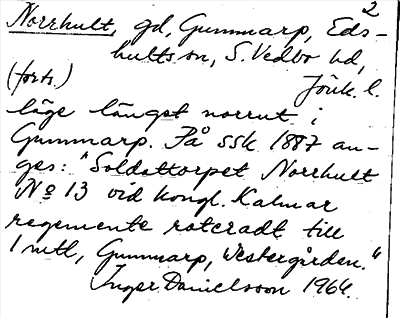 2
Norrhult, gd, Gummarp, Eds-
hults sn, S. Vedbo hd,
(forts.) Jönk. l.
läge längst norrut i
Gummarp. På ssk 1887 an-
ges: "Soldattorpet Norrhult
No 13 vid kongl. Kalmar
regemente roteradt till
1 mtl, Gummarp, Westergården."
Inger Danielsson 1964.